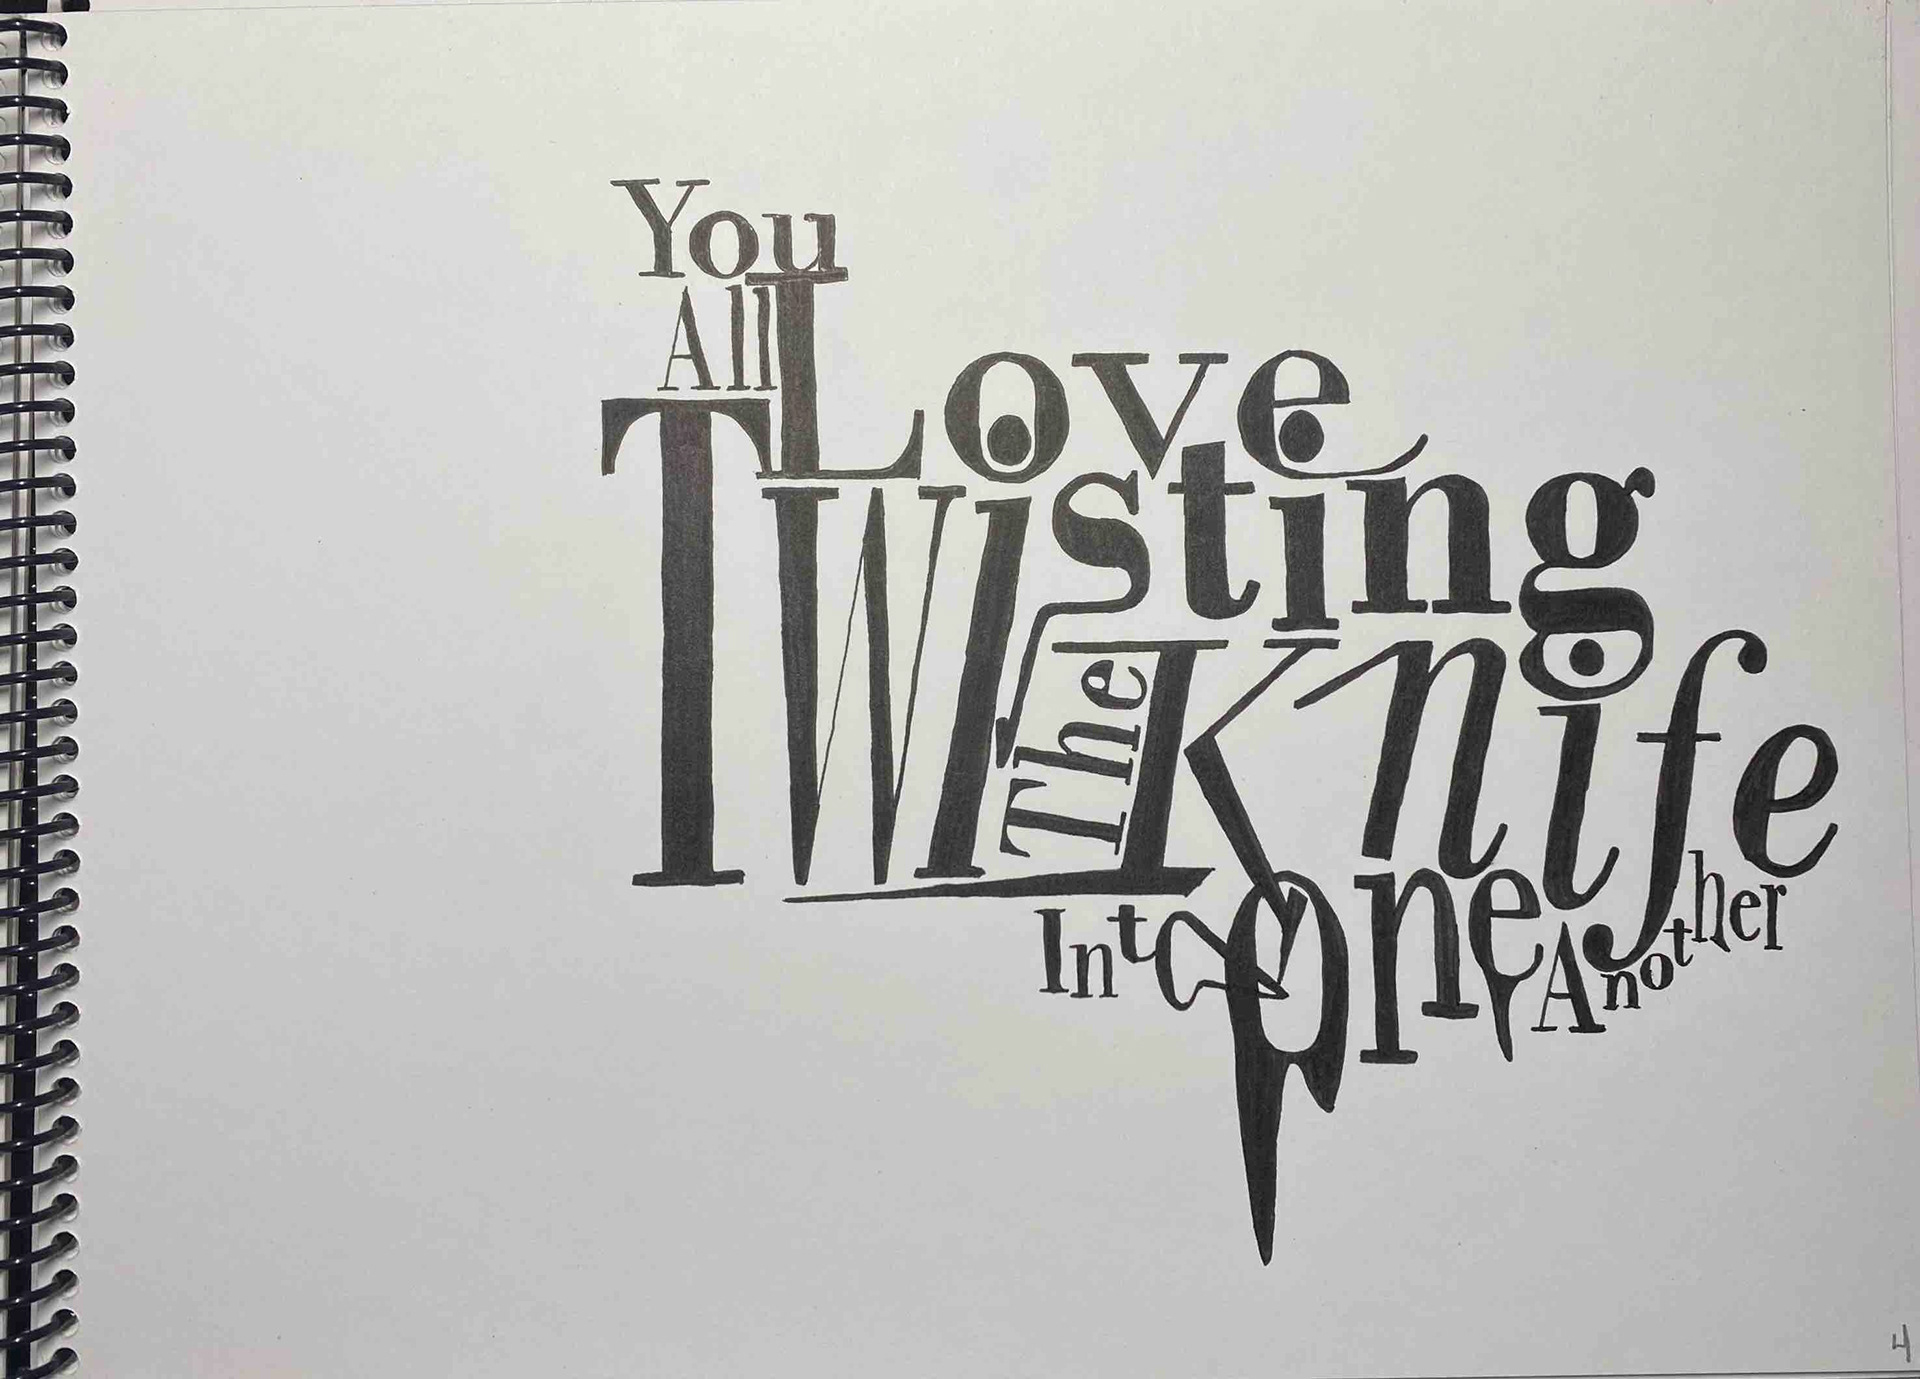 You
All Love
Twisting
The Knife
Into One Another
4